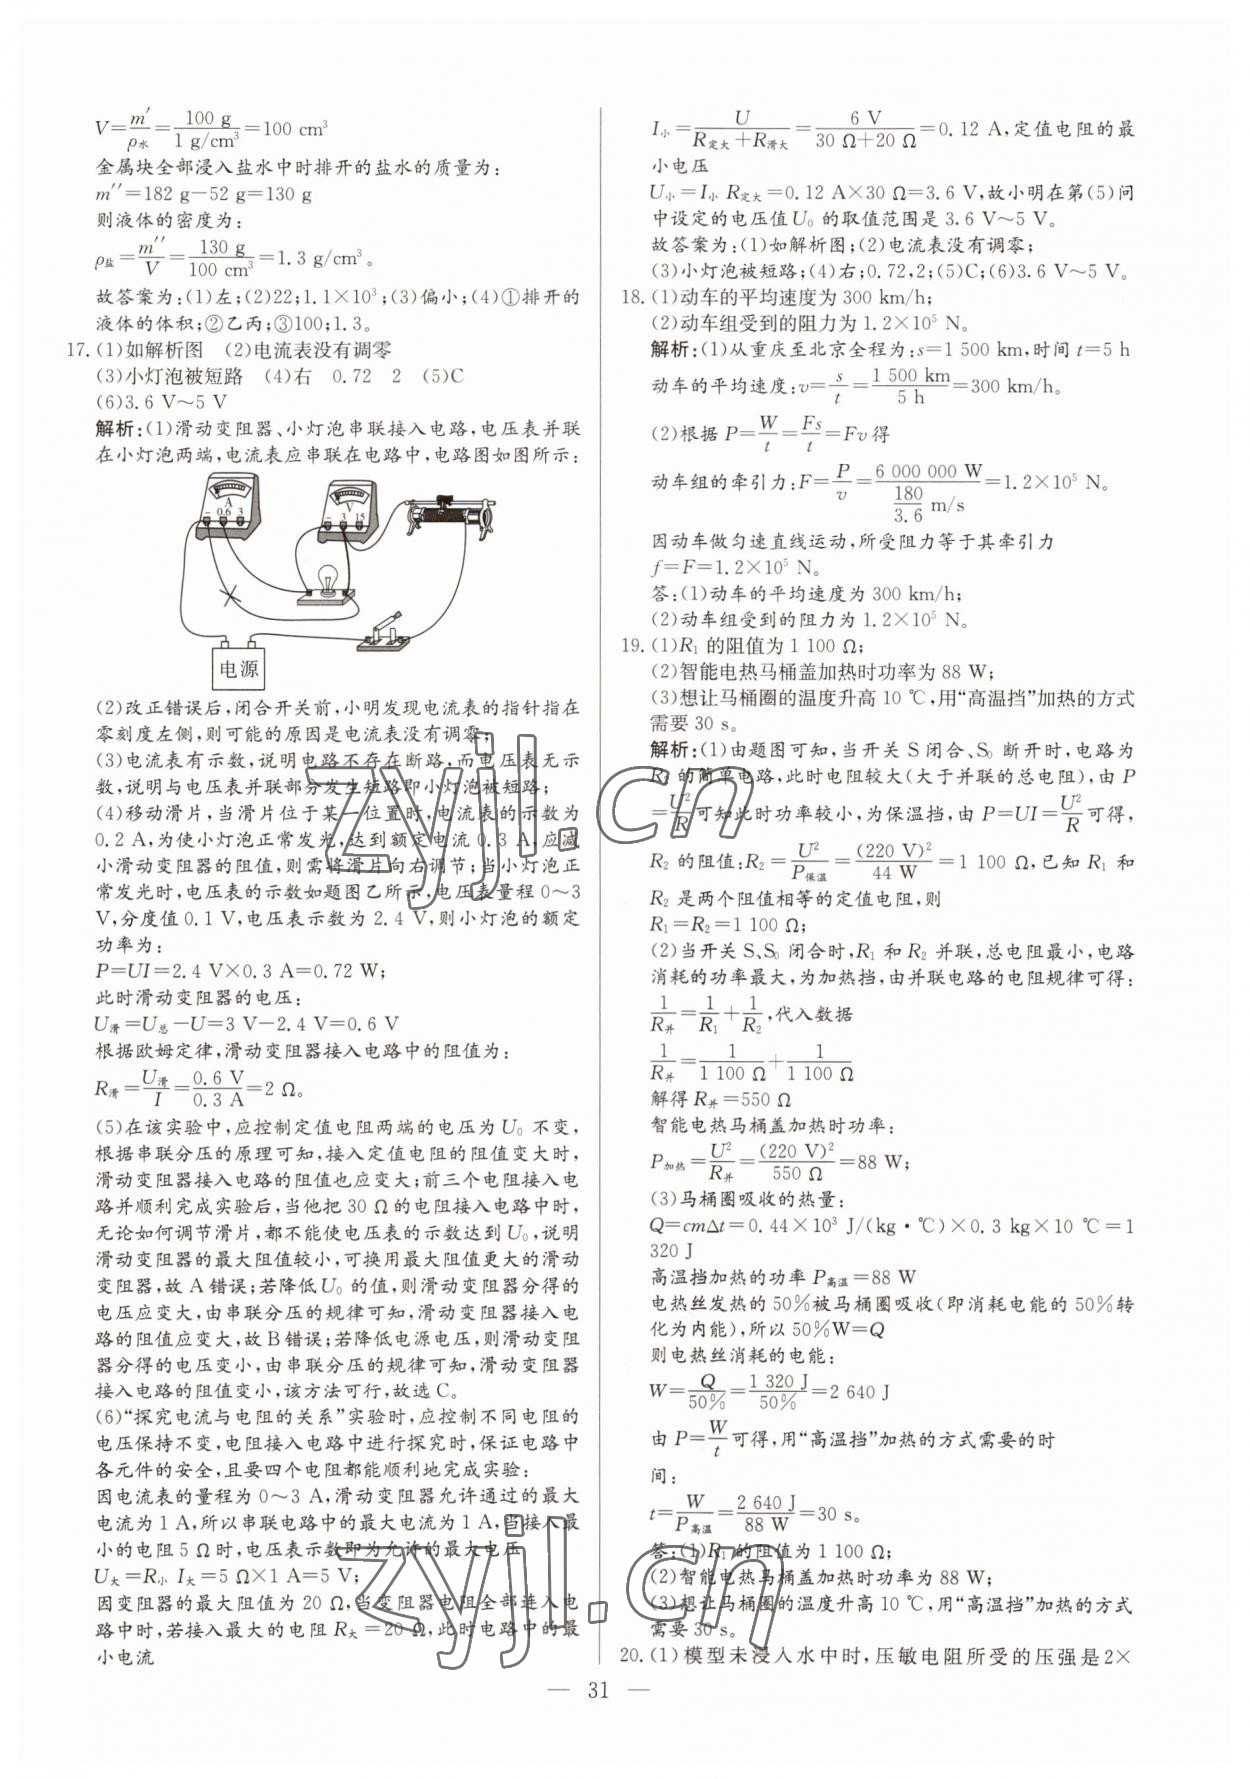 V=m′/ρ水=100 g/1 g/cm³=100 cm³
金属块全部浸入盐水中时排开的盐水的质量为:
m′′=182 g−52 g=130 g
则液体的密度为:
ρ盐=m′′/V=130 g/100 cm³=1.3 g/cm³。
故答案为:(1)左;(2)22;1.1×10³;(3)偏小;(4)①排开的
液体的体积;②乙丙;③100;1.3。
17.(1)如解析图 (2)电流表没有调零
(3)小灯泡被短路 (4)右 0.72 2 (5)C
(6)3.6 V～5 V
解析:(1)滑动变阻器、小灯泡串联接入电路,电压表并联
在小灯泡两端,电流表应串联在电路中,电路图如图所示:
A
− 0.6 3
V
− 3 15
电源
(2)改正错误后,闭合开关前,小明发现电流表的指针指在
零刻度左侧,则可能的原因是电流表没有调零;
(3)电流表有示数,说明电路不存在断路,而电压表无示
数,说明与电压表并联部分发生短路即小灯泡被短路;
(4)移动滑片,当滑片位于某一位置时,电流表的示数为
0.2 A,为使小灯泡正常发光,达到额定电流0.3 A,应减
小滑动变阻器的阻值,则需将滑片向右调节;当小灯泡正
常发光时,电压表的示数如题图乙所示,电压表量程0～3
V,分度值0.1 V,电压表示数为2.4 V,则小灯泡的额定
功率为:
P=UI=2.4 V×0.3 A=0.72 W;
此时滑动变阻器的电压:
U滑=U总−U=3 V−2.4 V=0.6 V
根据欧姆定律,滑动变阻器接入电路中的阻值为:
R滑=U滑/I=0.6 V/0.3 A=2 Ω。
(5)在该实验中,应控制定值电阻两端的电压为U₀不变,
根据串联分压的原理可知,接入定值电阻的阻值变大时,
滑动变阻器接入电路的阻值也应变大;前三个电阻接入电
路并顺利完成实验后,当他把30 Ω的电阻接入电路中时,
无论如何调节滑片,都不能使电压表的示数达到U₀,说明
滑动变阻器的最大阻值较小,可换用最大阻值更大的滑动
变阻器,故A错误;若降低U₀的值,则滑动变阻器分得的
电压应变大,由串联分压的规律可知,滑动变阻器接入电
路的阻值应变大,故B错误;若降低电源电压,则滑动变阻
器分得的电压变小,由串联分压的规律可知,滑动变阻器
接入电路的阻值变小,该方法可行,故选C。
(6)“探究电流与电阻的关系”实验时,应控制不同电阻的
电压保持不变,电阻接入电路中进行探究时,保证电路中
各元件的安全,且要四个电阻都能顺利地完成实验:
因电流表的量程为0～3 A,滑动变阻器允许通过的最大
电流为1 A,所以串联电路中的最大电流为1 A,当接入最
小的电阻5 Ω时,电压表示数即为允许的最大电压
U大=R小 I大=5 Ω×1 A=5 V;
因变阻器的最大阻值为20 Ω,当变阻器电阻全部连入电
路中时,若接入最大的电阻R大=20 Ω,此时电路中的最
小电流
I小=U/(R定大+R滑大)=6 V/(30 Ω+20 Ω)=0.12 A,定值电阻的最
小电压
U小=I小 R定大=0.12 A×30 Ω=3.6 V,故小明在第(5)问
中设定的电压值U₀的取值范围是3.6 V～5 V。
故答案为:(1)如解析图;(2)电流表没有调零;
(3)小灯泡被短路;(4)右;0.72,2;(5)C;(6)3.6 V～5 V。
18.(1)动车的平均速度为300 km/h;
(2)动车组受到的阻力为1.2×10⁵ N。
解析:(1)从重庆至北京全程为:s=1 500 km,时间t=5 h
动车的平均速度:v=s/t=1 500 km/5 h=300 km/h。
(2)根据P=W/t=Fs/t=Fv得
动车组的牵引力:F=P/v=6 000 000 W/(180/3.6 m/s)=1.2×10⁵ N。
因动车做匀速直线运动,所受阻力等于其牵引力
f=F=1.2×10⁵ N。
答:(1)动车的平均速度为300 km/h;
(2)动车组受到的阻力为1.2×10⁵ N。
19.(1)R₁的阻值为1 100 Ω;
(2)智能电热马桶盖加热时功率为88 W;
(3)想让马桶圈的温度升高10 ℃,用“高温挡”加热的方式
需要30 s。
解析:(1)由题图可知,当开关S闭合、S₀断开时,电路为
R₂的简单电路,此时电阻较大(大于并联的总电阻),由P
=U²/R可知此时功率较小,为保温挡,由P=UI=U²/R可得,
R₂的阻值:R₂=U²/P保温=(220 V)²/44 W=1 100 Ω,已知R₁和
R₂是两个阻值相等的定值电阻,则
R₁=R₂=1 100 Ω;
(2)当开关S、S₀闭合时,R₁和R₂并联,总电阻最小,电路
消耗的功率最大,为加热挡,由并联电路的电阻规律可得:
1/R并=1/R₁+1/R₂,代入数据
1/R并=1/1 100 Ω+1/1 100 Ω
解得R并=550 Ω
智能电热马桶盖加热时功率:
P加热=U²/R并=(220 V)²/550 Ω=88 W;
(3)马桶圈吸收的热量:
Q=cmΔt=0.44×10³ J/(kg·℃)×0.3 kg×10 ℃=1
320 J
高温挡加热的功率P高温=88 W
电热丝发热的50%被马桶圈吸收(即消耗电能的50%转
化为内能),所以50%W=Q
则电热丝消耗的电能:
W=Q/50%=1 320 J/50%=2 640 J
由P=W/t可得,用“高温挡”加热的方式需要的时
间:
t=W/P高温=2 640 J/88 W=30 s。
答:(1)R₁的阻值为1 100 Ω;
(2)智能电热马桶盖加热时功率为88 W;
(3)想让马桶圈的温度升高10 ℃,用“高温挡”加热的方式
需要30 s。
20.(1)模型未浸入水中时,压敏电阻所受的压强是2×
— 31 —
zyjl.cn
zyjl.cn